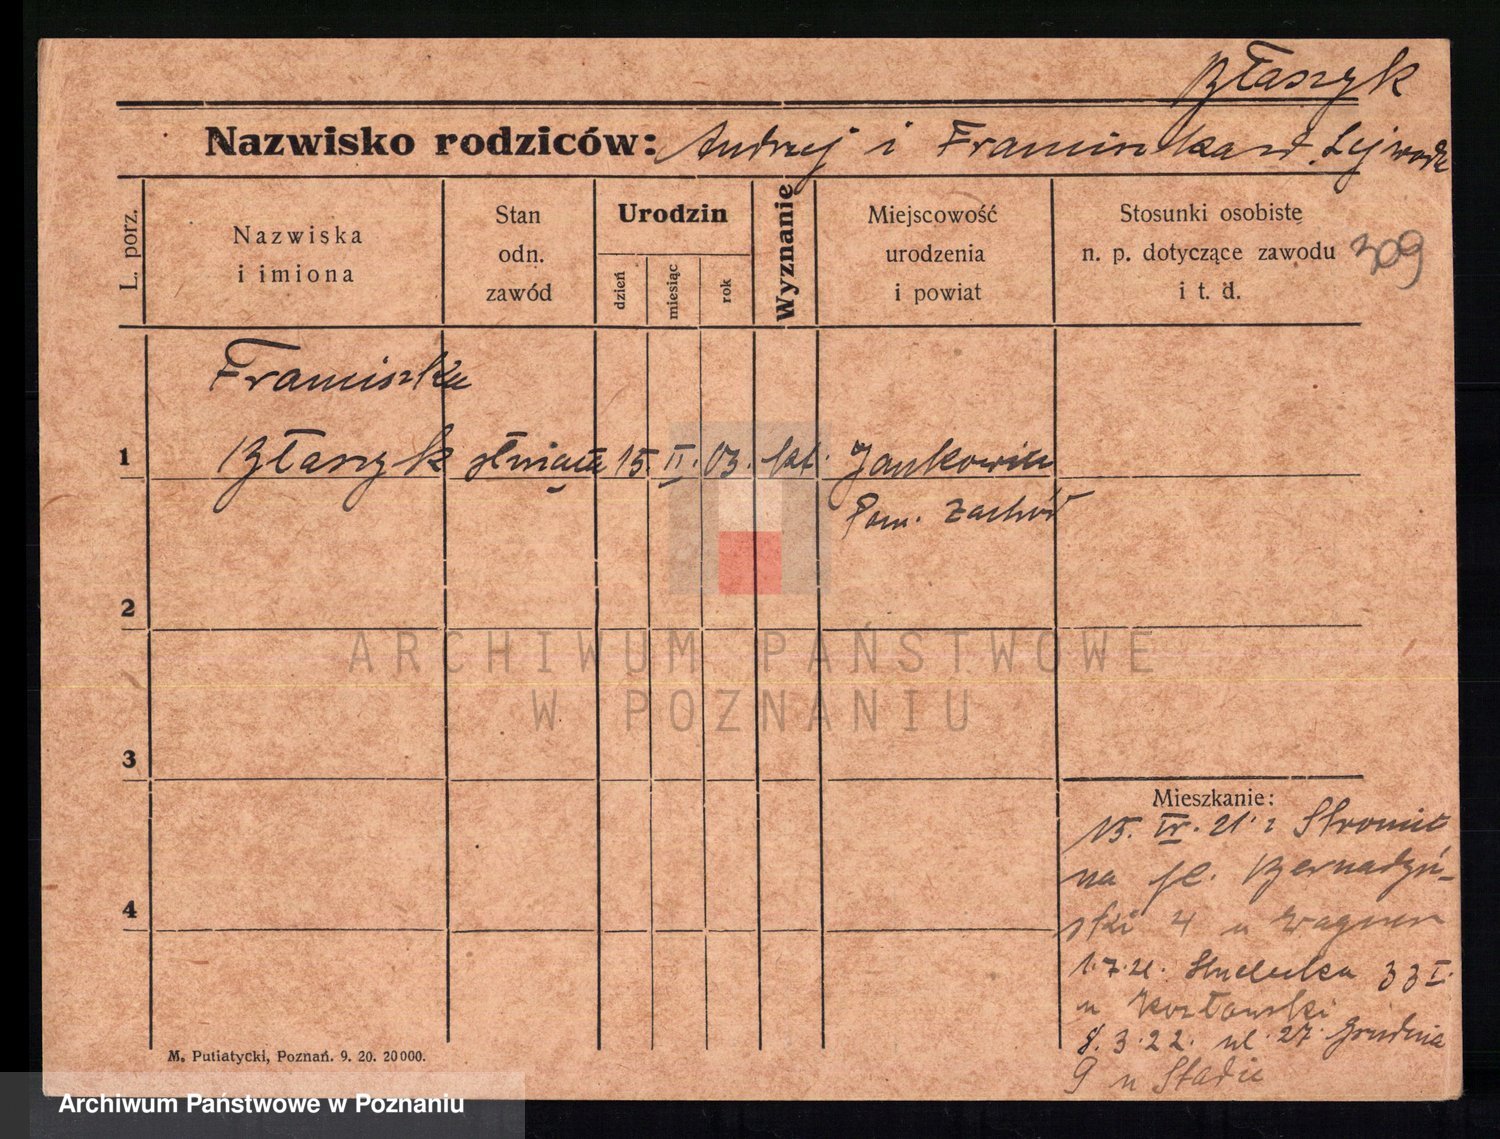 Błaszyk
Nazwisko rodziców: Andrzej i Franciszka zd.
L. porz.
Nazwiska
i imiona
Stan
odn.
zawód
Urodzin
dzień
miesiąc
rok
Wyznanie
Miejscowość
urodzenia
i powiat
Stosunki osobiste
n. p. dotyczące zawodu
i t. d.
309
Franciszka
1 Błaszyk służąca 15. II. 03. kat. Jankowice
Pozn. Zachód
2
3
4
ARCHIWUM PAŃSTWOWE
W POZNANIU
Mieszkanie:
15. IV. 21 z
na pl. Bernadyń-
ski 4 u Wagner
1.7.21. Strzelecka 33 I.
u Kozłowski
8. 3. 22. ul. 27 Grudnia
9 u
M. Putiatycki, Poznań. 9. 20. 20000.
Archiwum Państwowe w Poznaniu